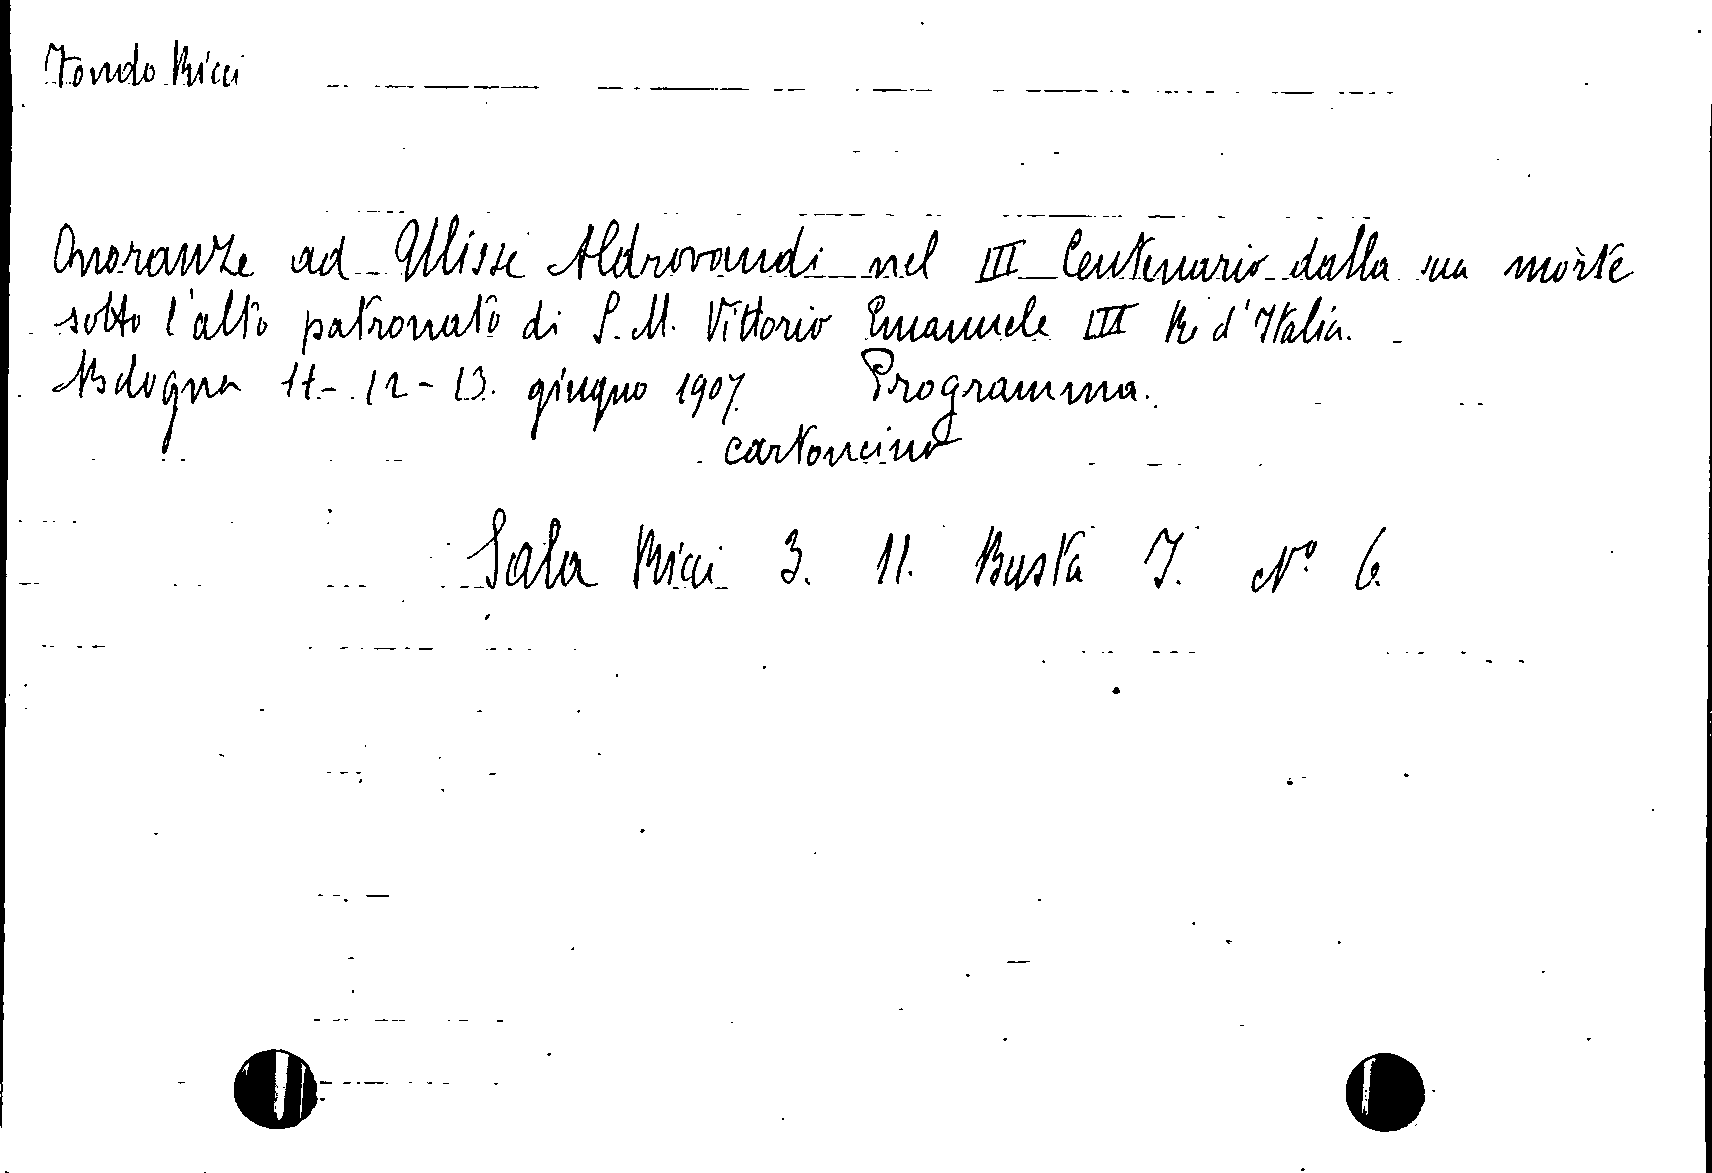 Fondo Ricci
Onoranze ad Ulisse Aldrovandi nel III Centenario dalla sua morte
sotto l'alto patronato di S. M. Vittorio Emanuele III Re d'Italia.
Bologna 11-12-13. giugno 1907. Programma.
cartoncino
Sala Ricci 3. 11. Busta I. Nº 6.